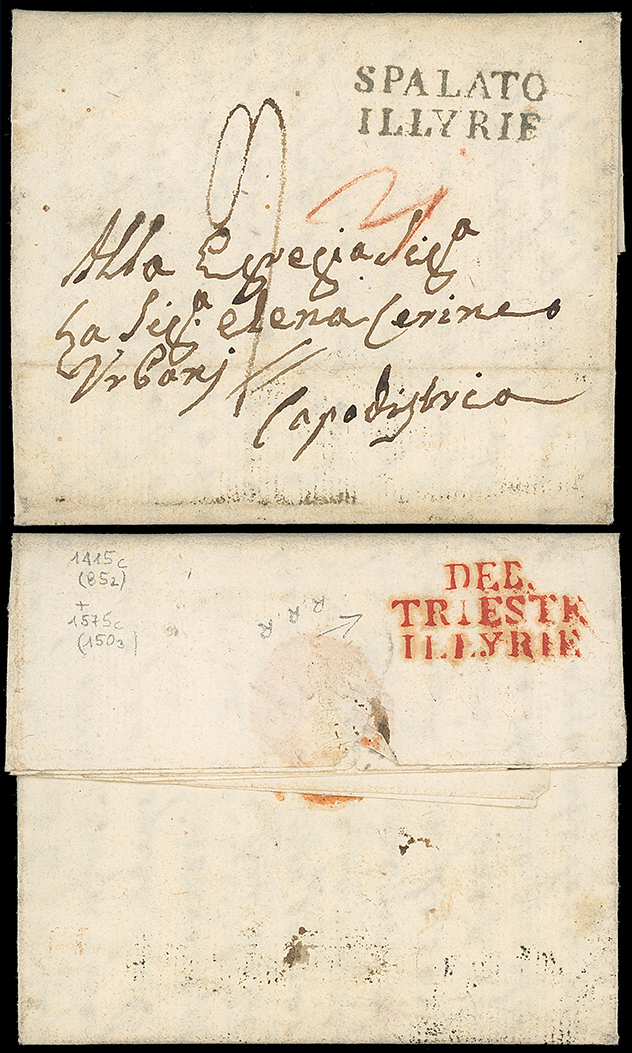 SPALATO
ILLYRIE
Alla Egregia Sigª
La Sigª Elena Cerineo
Urbani
Capodistria
1415c
(852)
+
1575c
(1503)
R R R
DEB.
TRIESTE
ILLYRIE